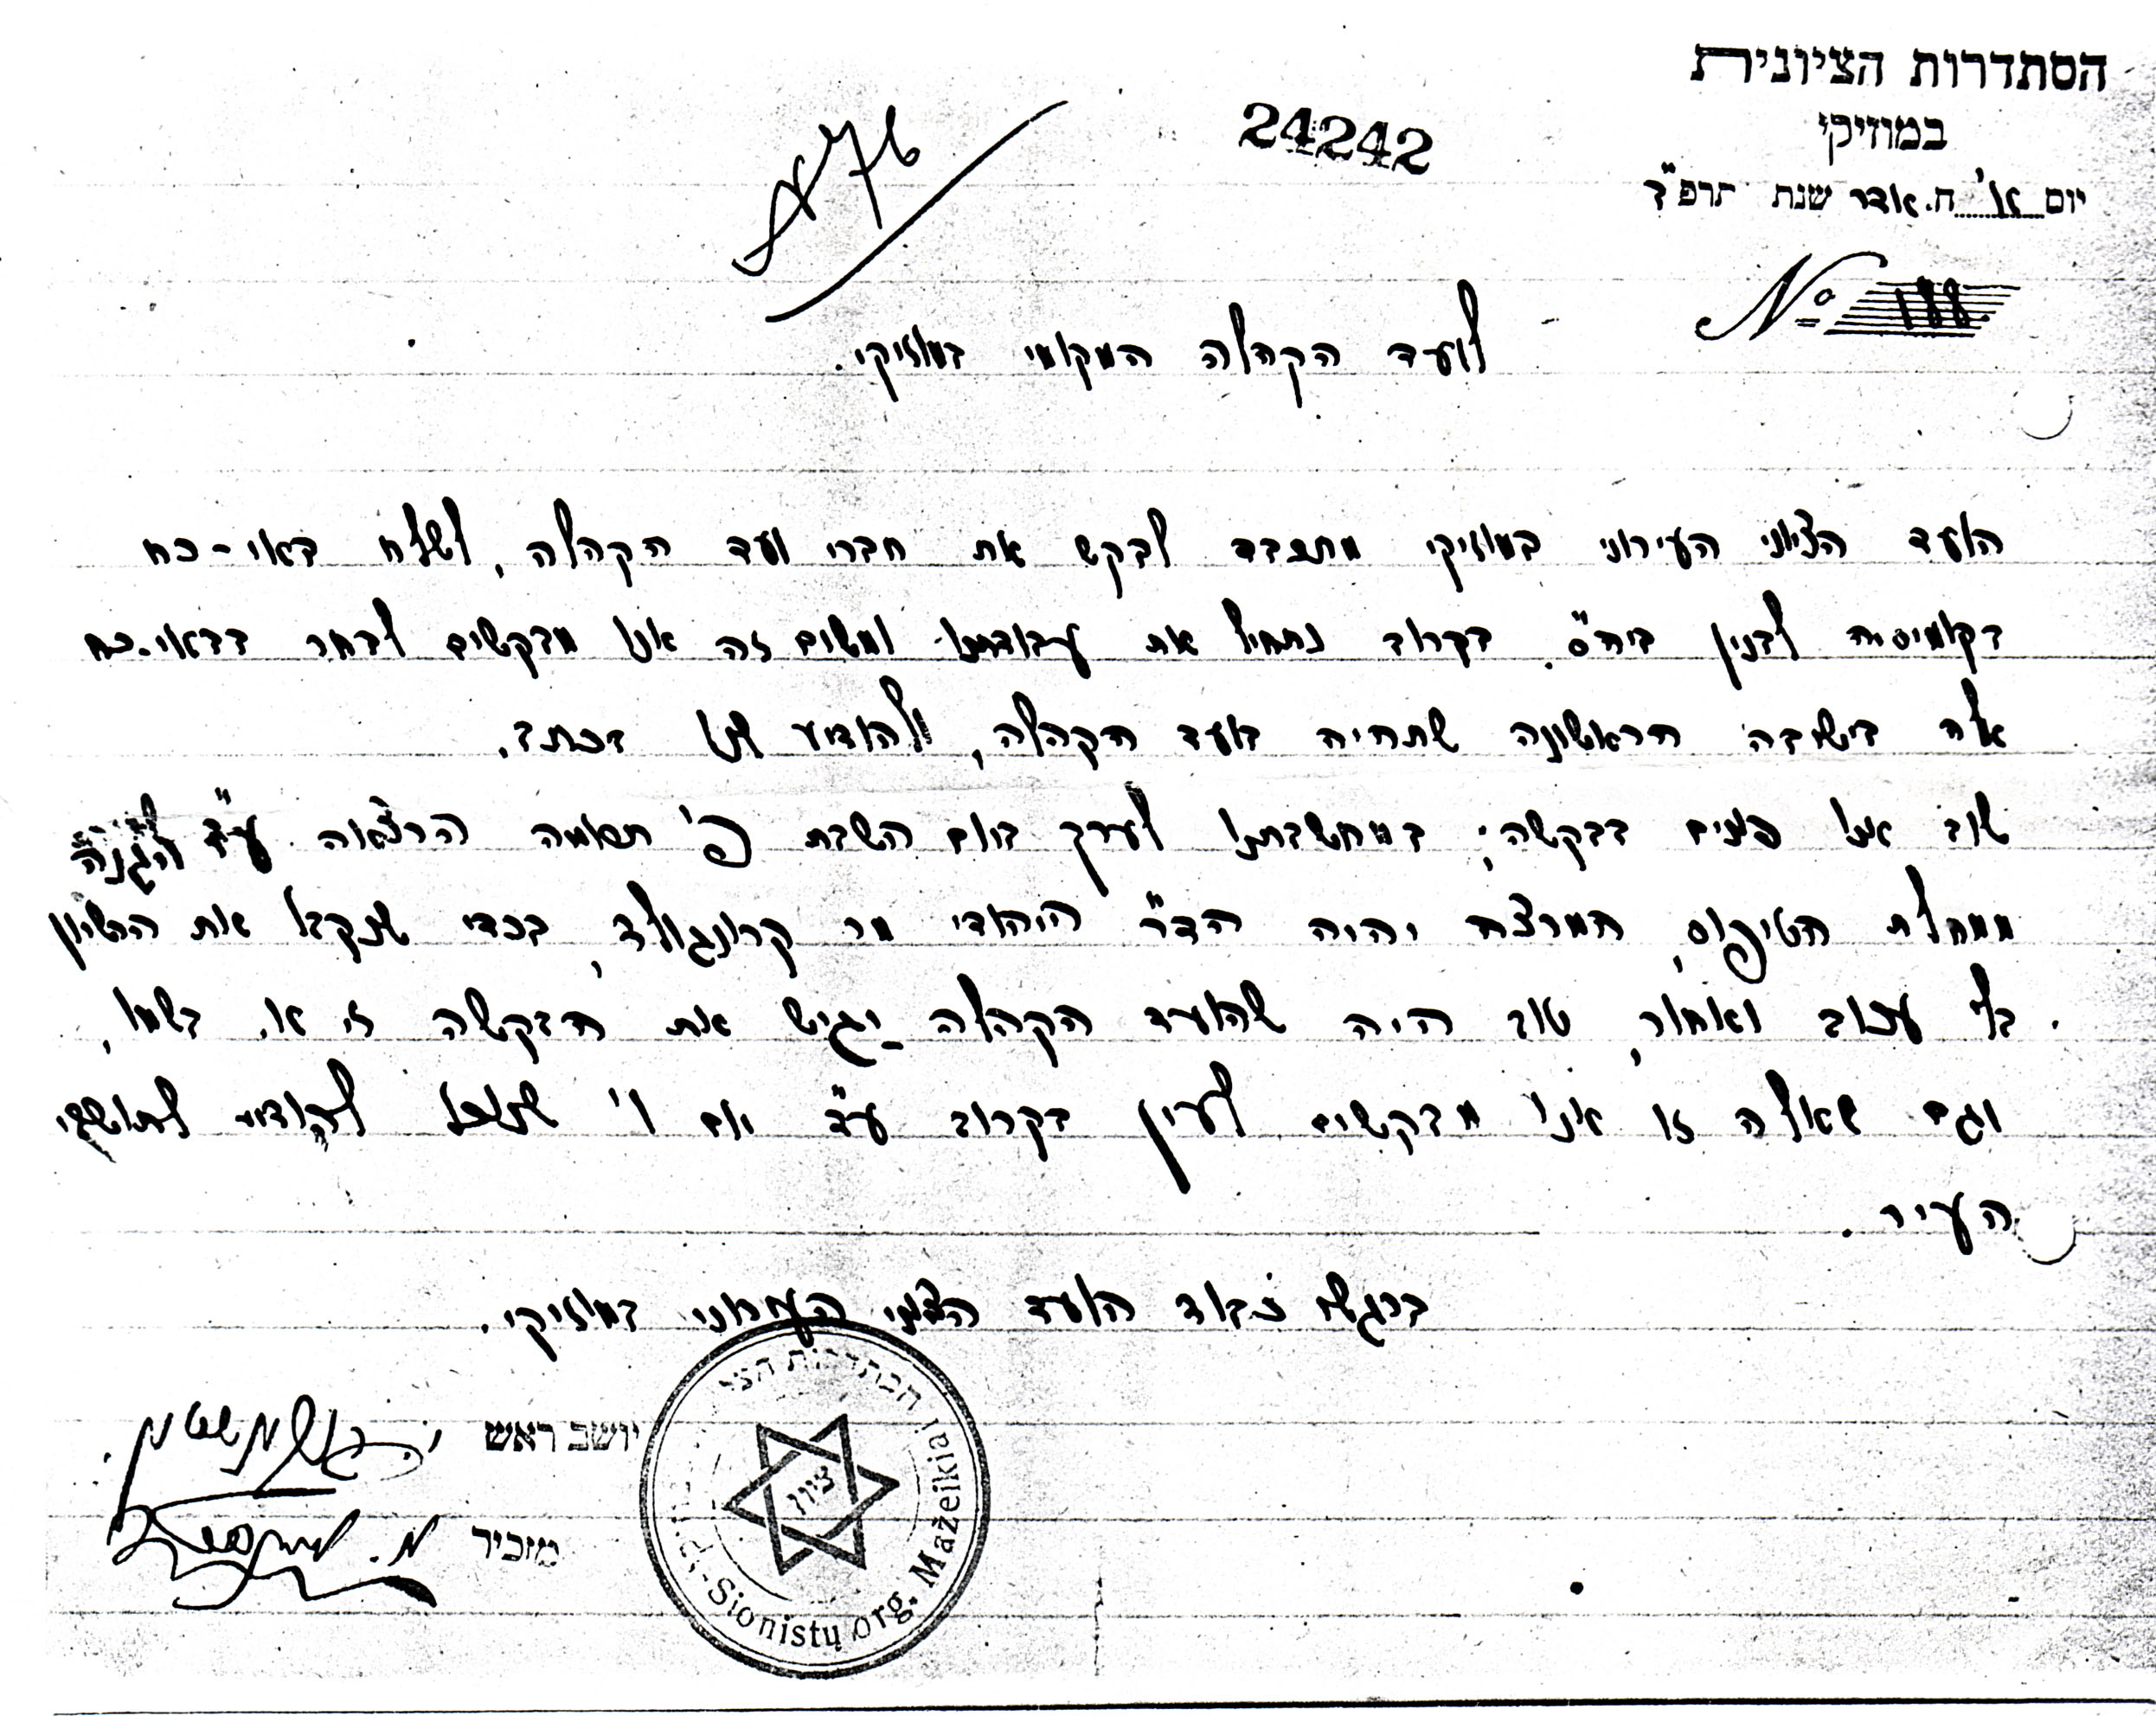 הסתדרות הציונית
במוזיקי
יום א' ח. אדר שנת תרפ"ד
24242
№ 188
לועד הקהלה המקומי במוזיקי.
הועד הציוני העירוני במוזיקי מתכבד לבקש את חברי ועד הקהלה, לשלח באי-כח
בקומיסיה לבנין ביה"ס. בקרוב נתחיל את עבודתנו ומשום זה אנו מבקשים לבחר בבאי-כח
אלה בישיבה הראשונה שתהיה בועד הקהלה, ולהודיע לנו בכתב.
שוב אנו פונים בבקשה; במחשבתנו לערך ביום השבת פ' תצוה הרצאה ע"ד להגנה
ממחלת הטיפוס, המרצה יהיה הד"ר היהודי מר קרונגולד, בכדי שנקבל את הרשיון
בלי עכוב ואחור, טוב היה שהועד הקהלה יגיש את הבקשה זו בשמו,
וגם שאלה זו אנו מבקשים לעין בקרוב ע"ד יום ו' שנוכל להודיע לתושבי
העיר.
ברגשי כבוד הועד הציוני העירוני במוזיקי.
יושב ראש
מזכיר מ.
ציון
Sionistų org. Mažeikiai